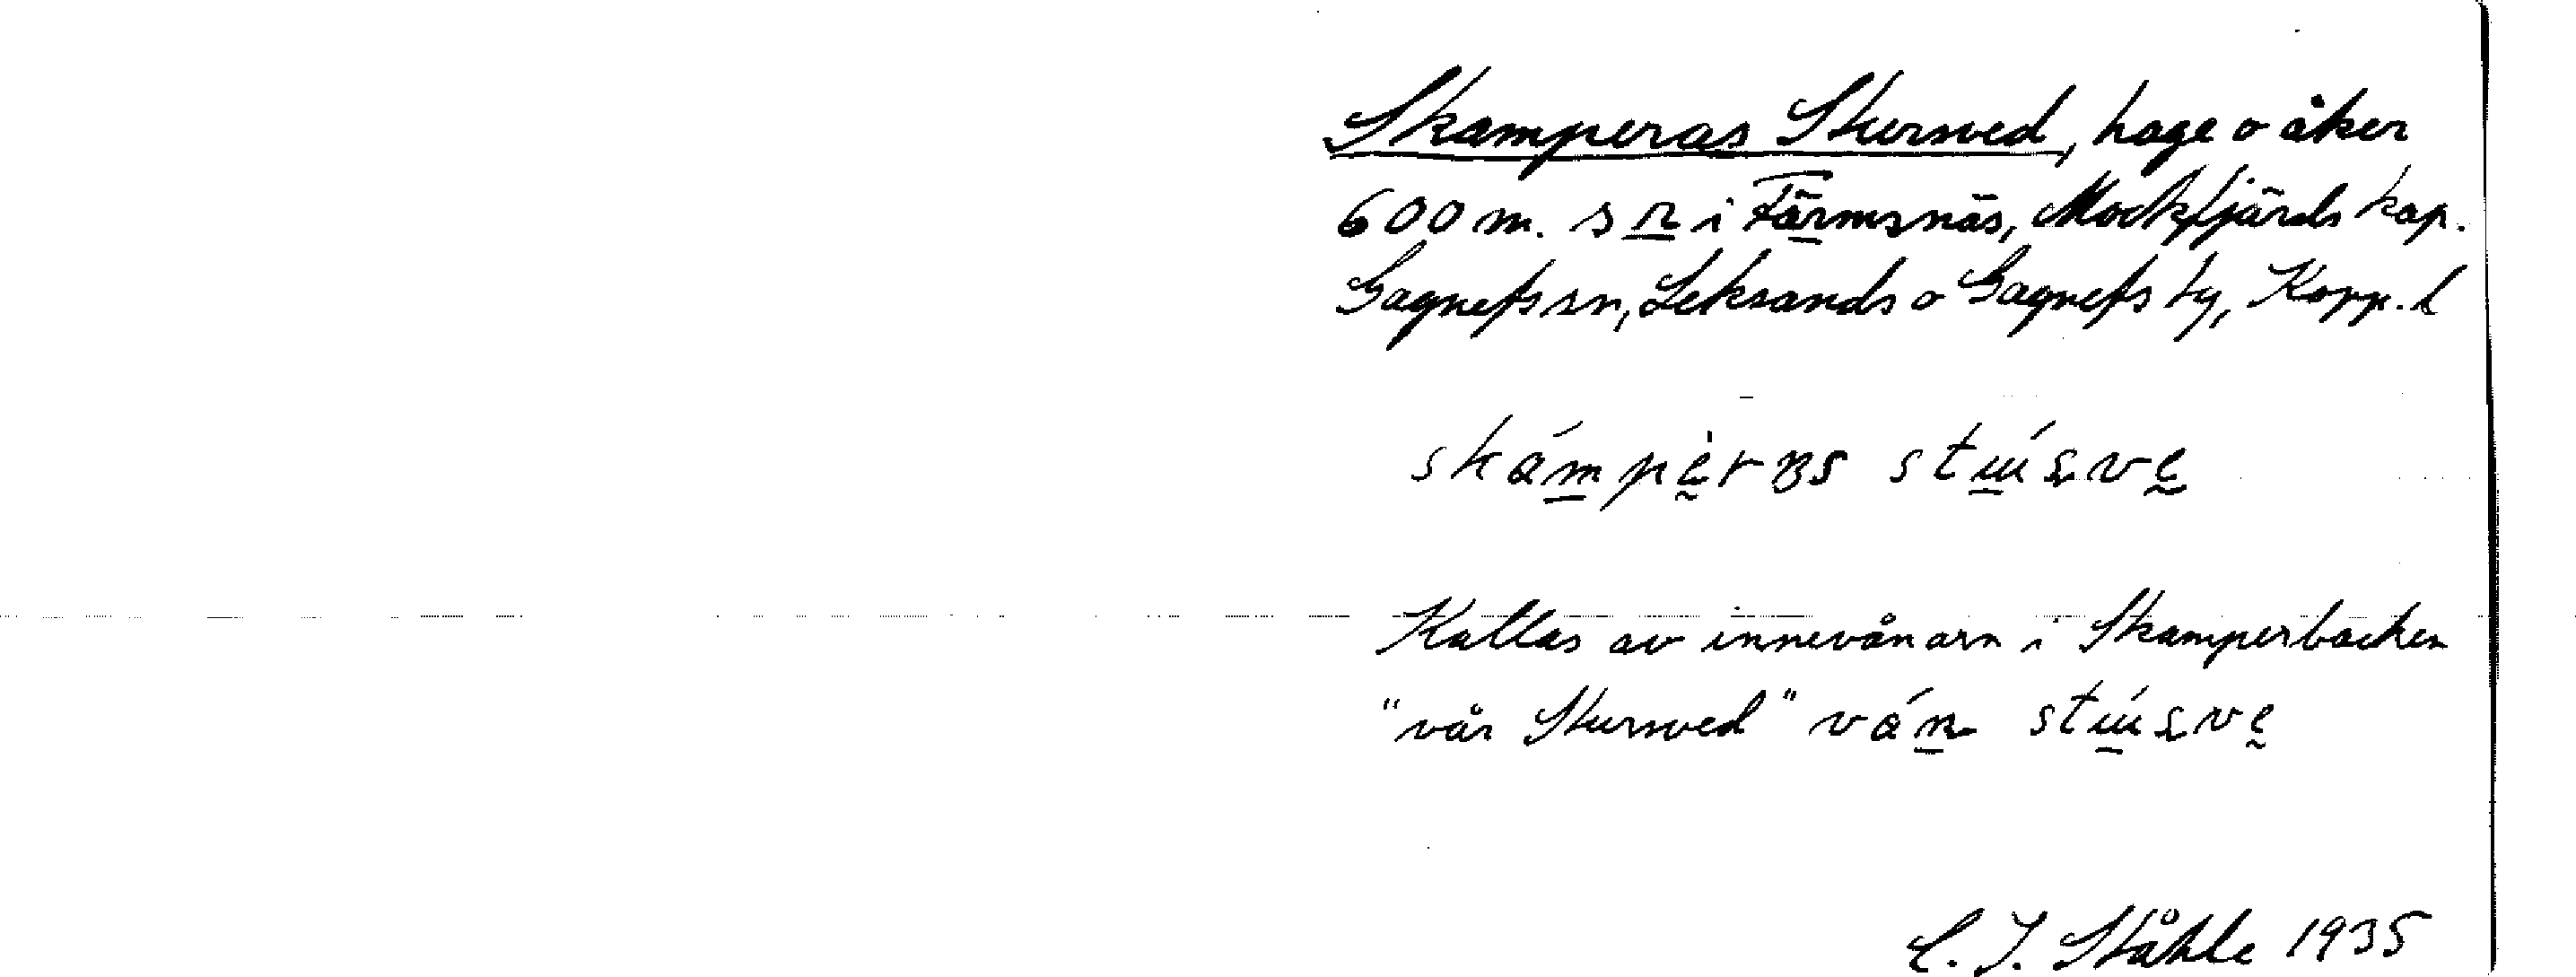 Skamperas Stursved, hage o åker
600 m. s n i Färmsnäs, Mockfjärds kap.
Gagnefs sn, Leksands o Gagnefs tg, Kopp. l
Kallas av innevånarn i Skamperbacken
"vår Stursved"
C. I. Ståhle 1935